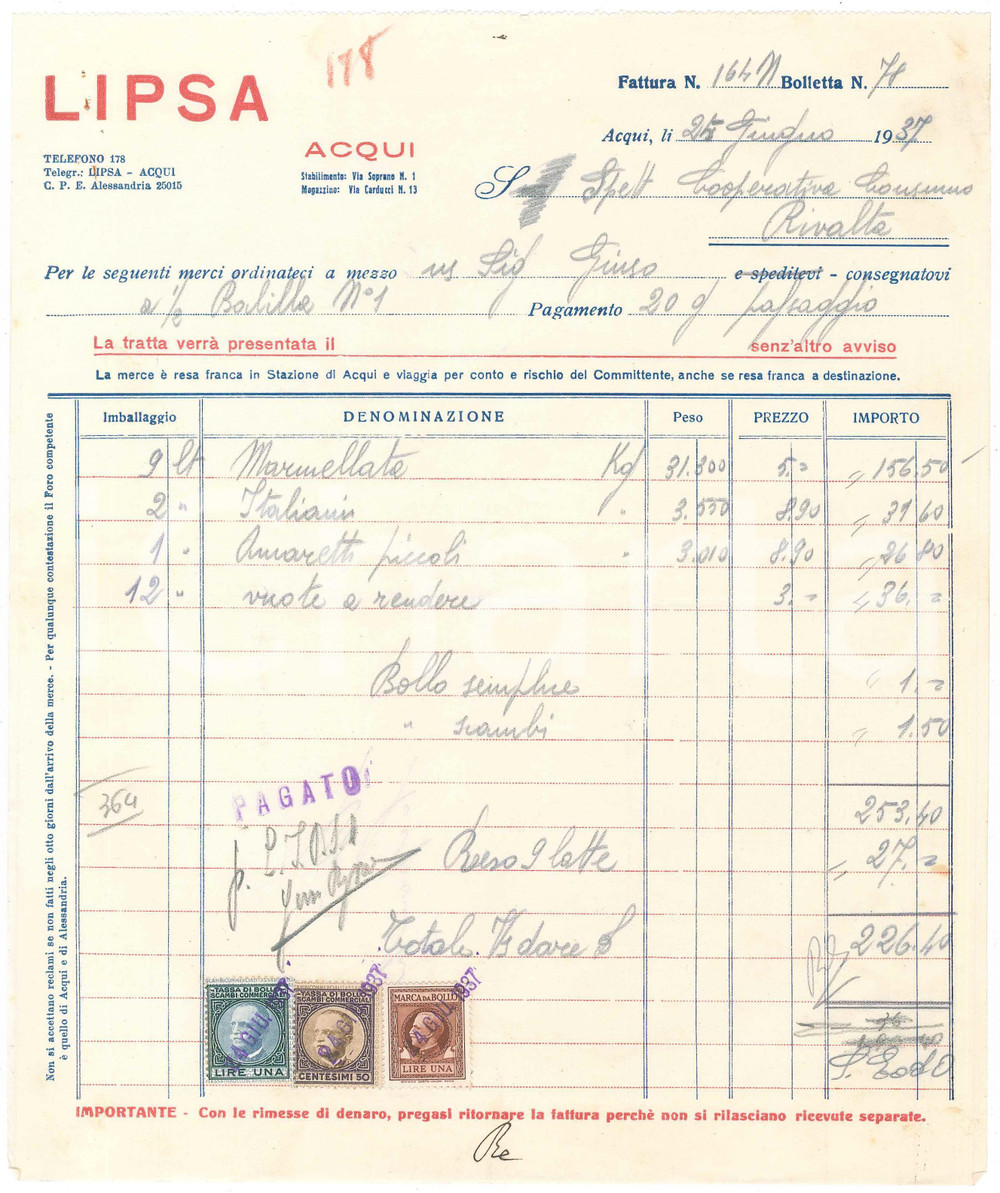 178
LIPSA
TELEFONO 178
Telegr.: LIPSA - ACQUI
C. P. E. Alessandria 25015
ACQUI
Stabilimento: Via Soprano N. 1
Magazzino: Via Carducci N. 13
Fattura N. 164 N Bolletta N. 78
Acqui, lì 24 Giugno 1937
S Spett Cooperativa Consumo
Rivalta
Per le seguenti merci ordinateci a mezzo ns Sig Giuso e speditevi - consegnatovi
a/ Balilla N° 1 Pagamento 20 g passaggio
La tratta verrà presentata il senz'altro avviso
La merce è resa franca in Stazione di Acqui e viaggia per conto e rischio del Committente, anche se resa franca a destinazione.
Imballaggio DENOMINAZIONE Peso PREZZO IMPORTO
9 lt Marmellata Kg 31.300 5.= 156.50
2 " Italiani " 3.550 8.90 31 60
1 " Amaretti piccoli " 3.010 8.90 26 80
12 " vuote a rendere 3.= 36.=
Bollo semplice 1.=
" scambi 1.50
PAGATO
364
253.40
Reso 9 latte 27.=
Totale a dare 226.40
TASSA DI BOLLO SCAMBI COMMERCIALI LIRE UNA
TASSA DI BOLLO SCAMBI COMMERCIALI CENTESIMI 50
MARCA DA BOLLO LIRE UNA
24 GIU 1937
24 GIU 1937
24 GIU 1937
Non si accettano reclami se non fatti negli otto giorni dall'arrivo della merce. - Per qualunque contestazione il Foro competente
è quello di Acqui e di Alessandria.
IMPORTANTE - Con le rimesse di denaro, pregasi ritornare la fattura perchè non si rilasciano ricevute separate.